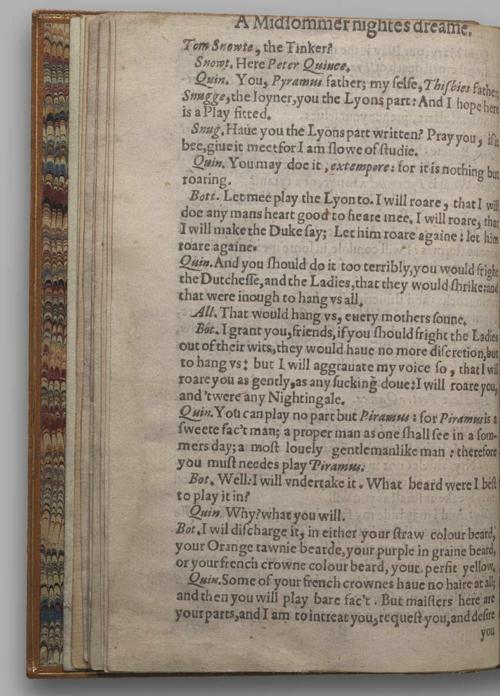 A Midsommer nightes dreame.
Tom Snowte, the Tinker?
Snowt. Here Peter Quince.
Quin. You, Pyramus father; my selfe, Thisbies father;
Snugge, the Ioyner, you the Lyons part: And I hope here
is a Play fitted.
Snug. Haue you the Lyons part written? Pray you, if it
bee, giue it mee: for I am slowe of studie.
Quin. You may doe it, extempore: for it is nothing but
roaring.
Bott. Let mee play the Lyon to. I will roare, that I will
doe any mans heart good to heare mee. I will roare, that
I will make the Duke say; Let him roare againe: let him
roare againe.
Quin. And you should do it too terribly, you would fright
the Dutchesse, and the Ladies, that they would shrike: and
that were inough to hang vs all.
All. That would hang vs, euery mothers sonne.
Bot. I grant you, friends, if you should fright the Ladies
out of their wits, they would haue no more discretion, but
to hang vs: but I will aggrauate my voice so, that I wil
roare you as gently, as any sucking doue: I will roare you,
and 'twere any Nightingale.
Quin. You can play no part but Piramus: for Piramus is a
sweete fac't man; a proper man as one shall see in a som-
mers day; a most louely gentlemanlike man: therefore
you must needes play Piramus.
Bot. Well: I will vndertake it. What beard were I best
to play it in?
Quin. Why? what you will.
Bot. I wil discharge it, in either your straw colour beard,
your Orange tawnie bearde, your purple in graine beard,
or your french crowne colour beard, your perfit yellow.
Quin. Some of your french crownes haue no haire at all;
and then you will play bare fac't. But maisters here are
your parts, and I am to intreat you, request you, and desire
you